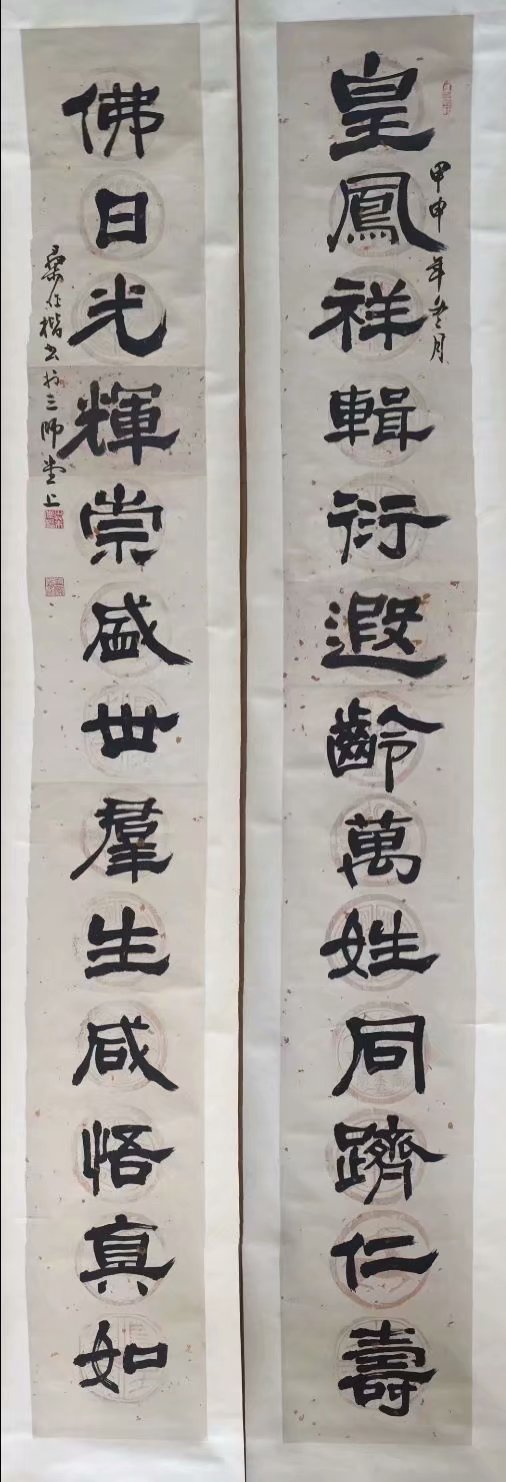 皇鳳祥輯衍遐齡萬姓同躋仁壽
甲申年冬月
佛日光輝崇盛世羣生咸悟真如
桑作楷書於三師堂上